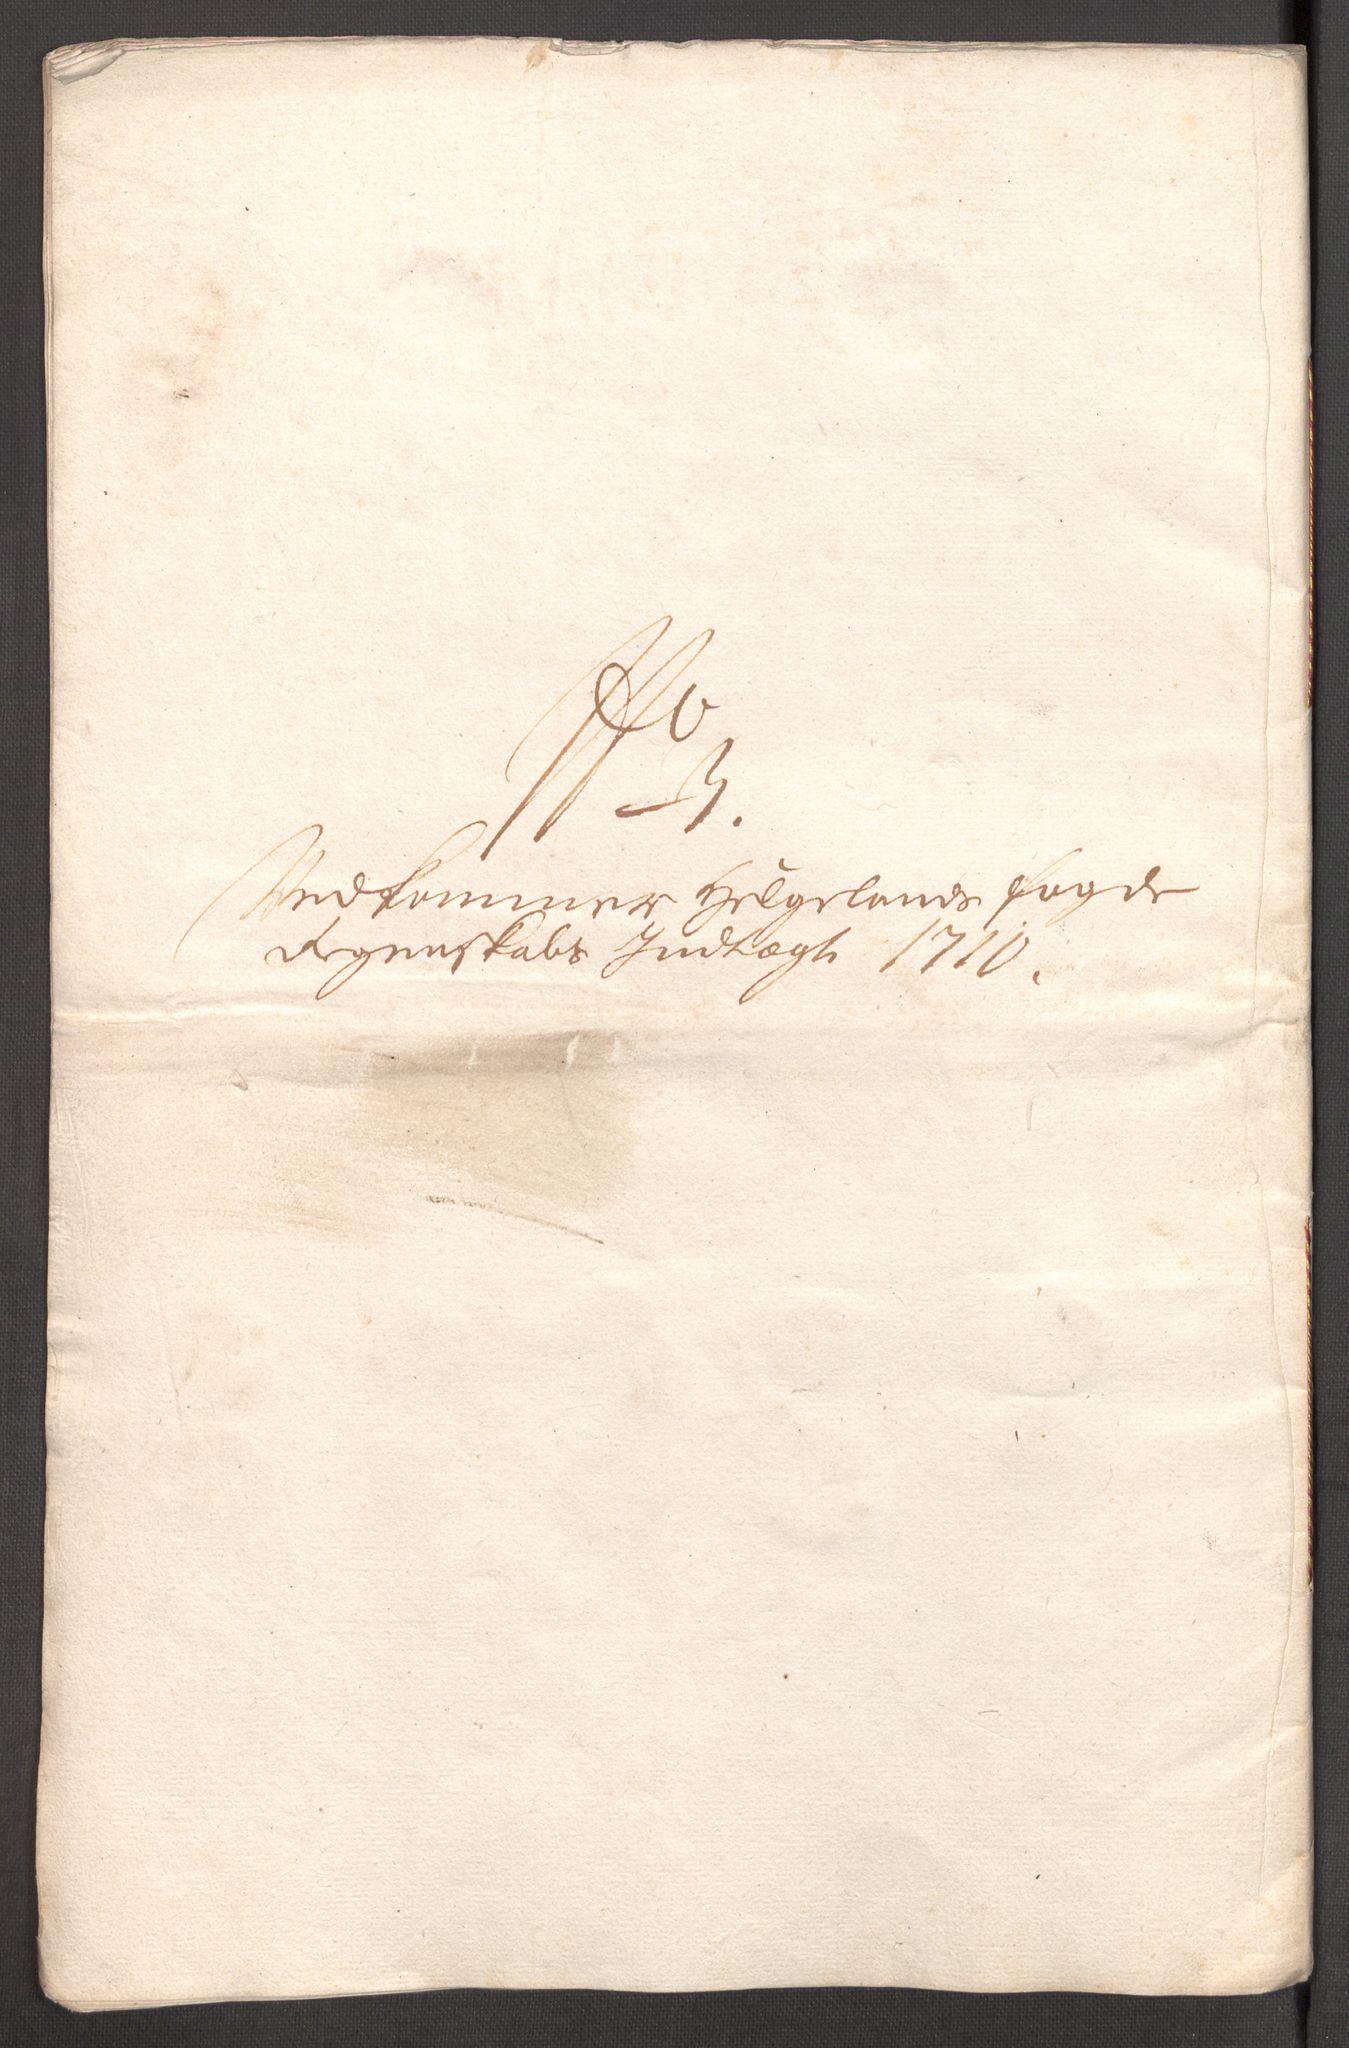 No
3.
Vedkommer Helgelands fogde
Regenskabs Indtægt 1710.